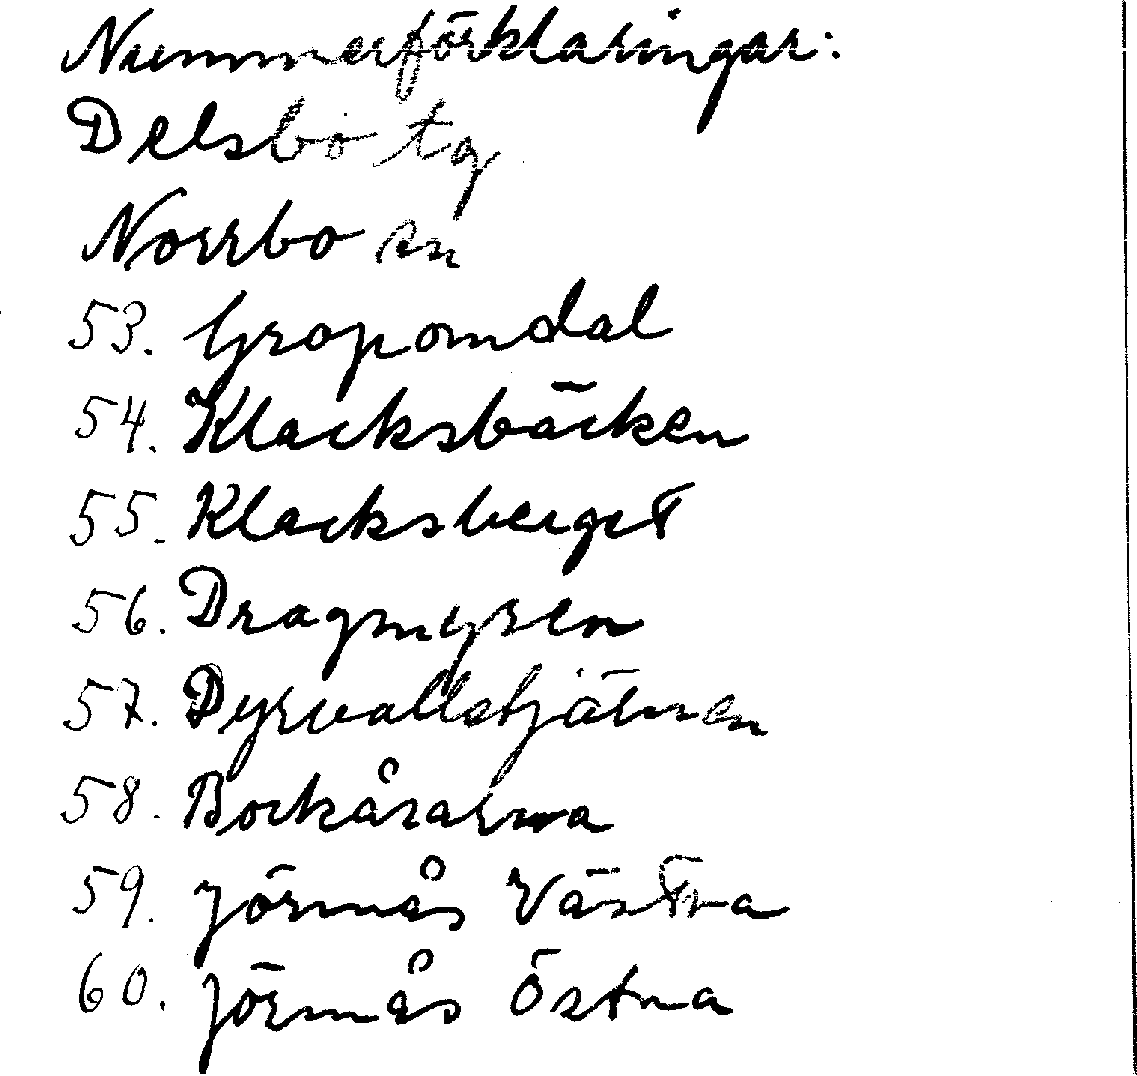 Nummerförklaringar:
Delsbo tg
Norrbo sn
53. Gropomdal
54. Klacksbäcken
55. Klacksberget
56. Dragmyren
57. Dyrvallstjärnen
58. Bockåsarna
59. Jörnås Västra
60. Jörnås Östra